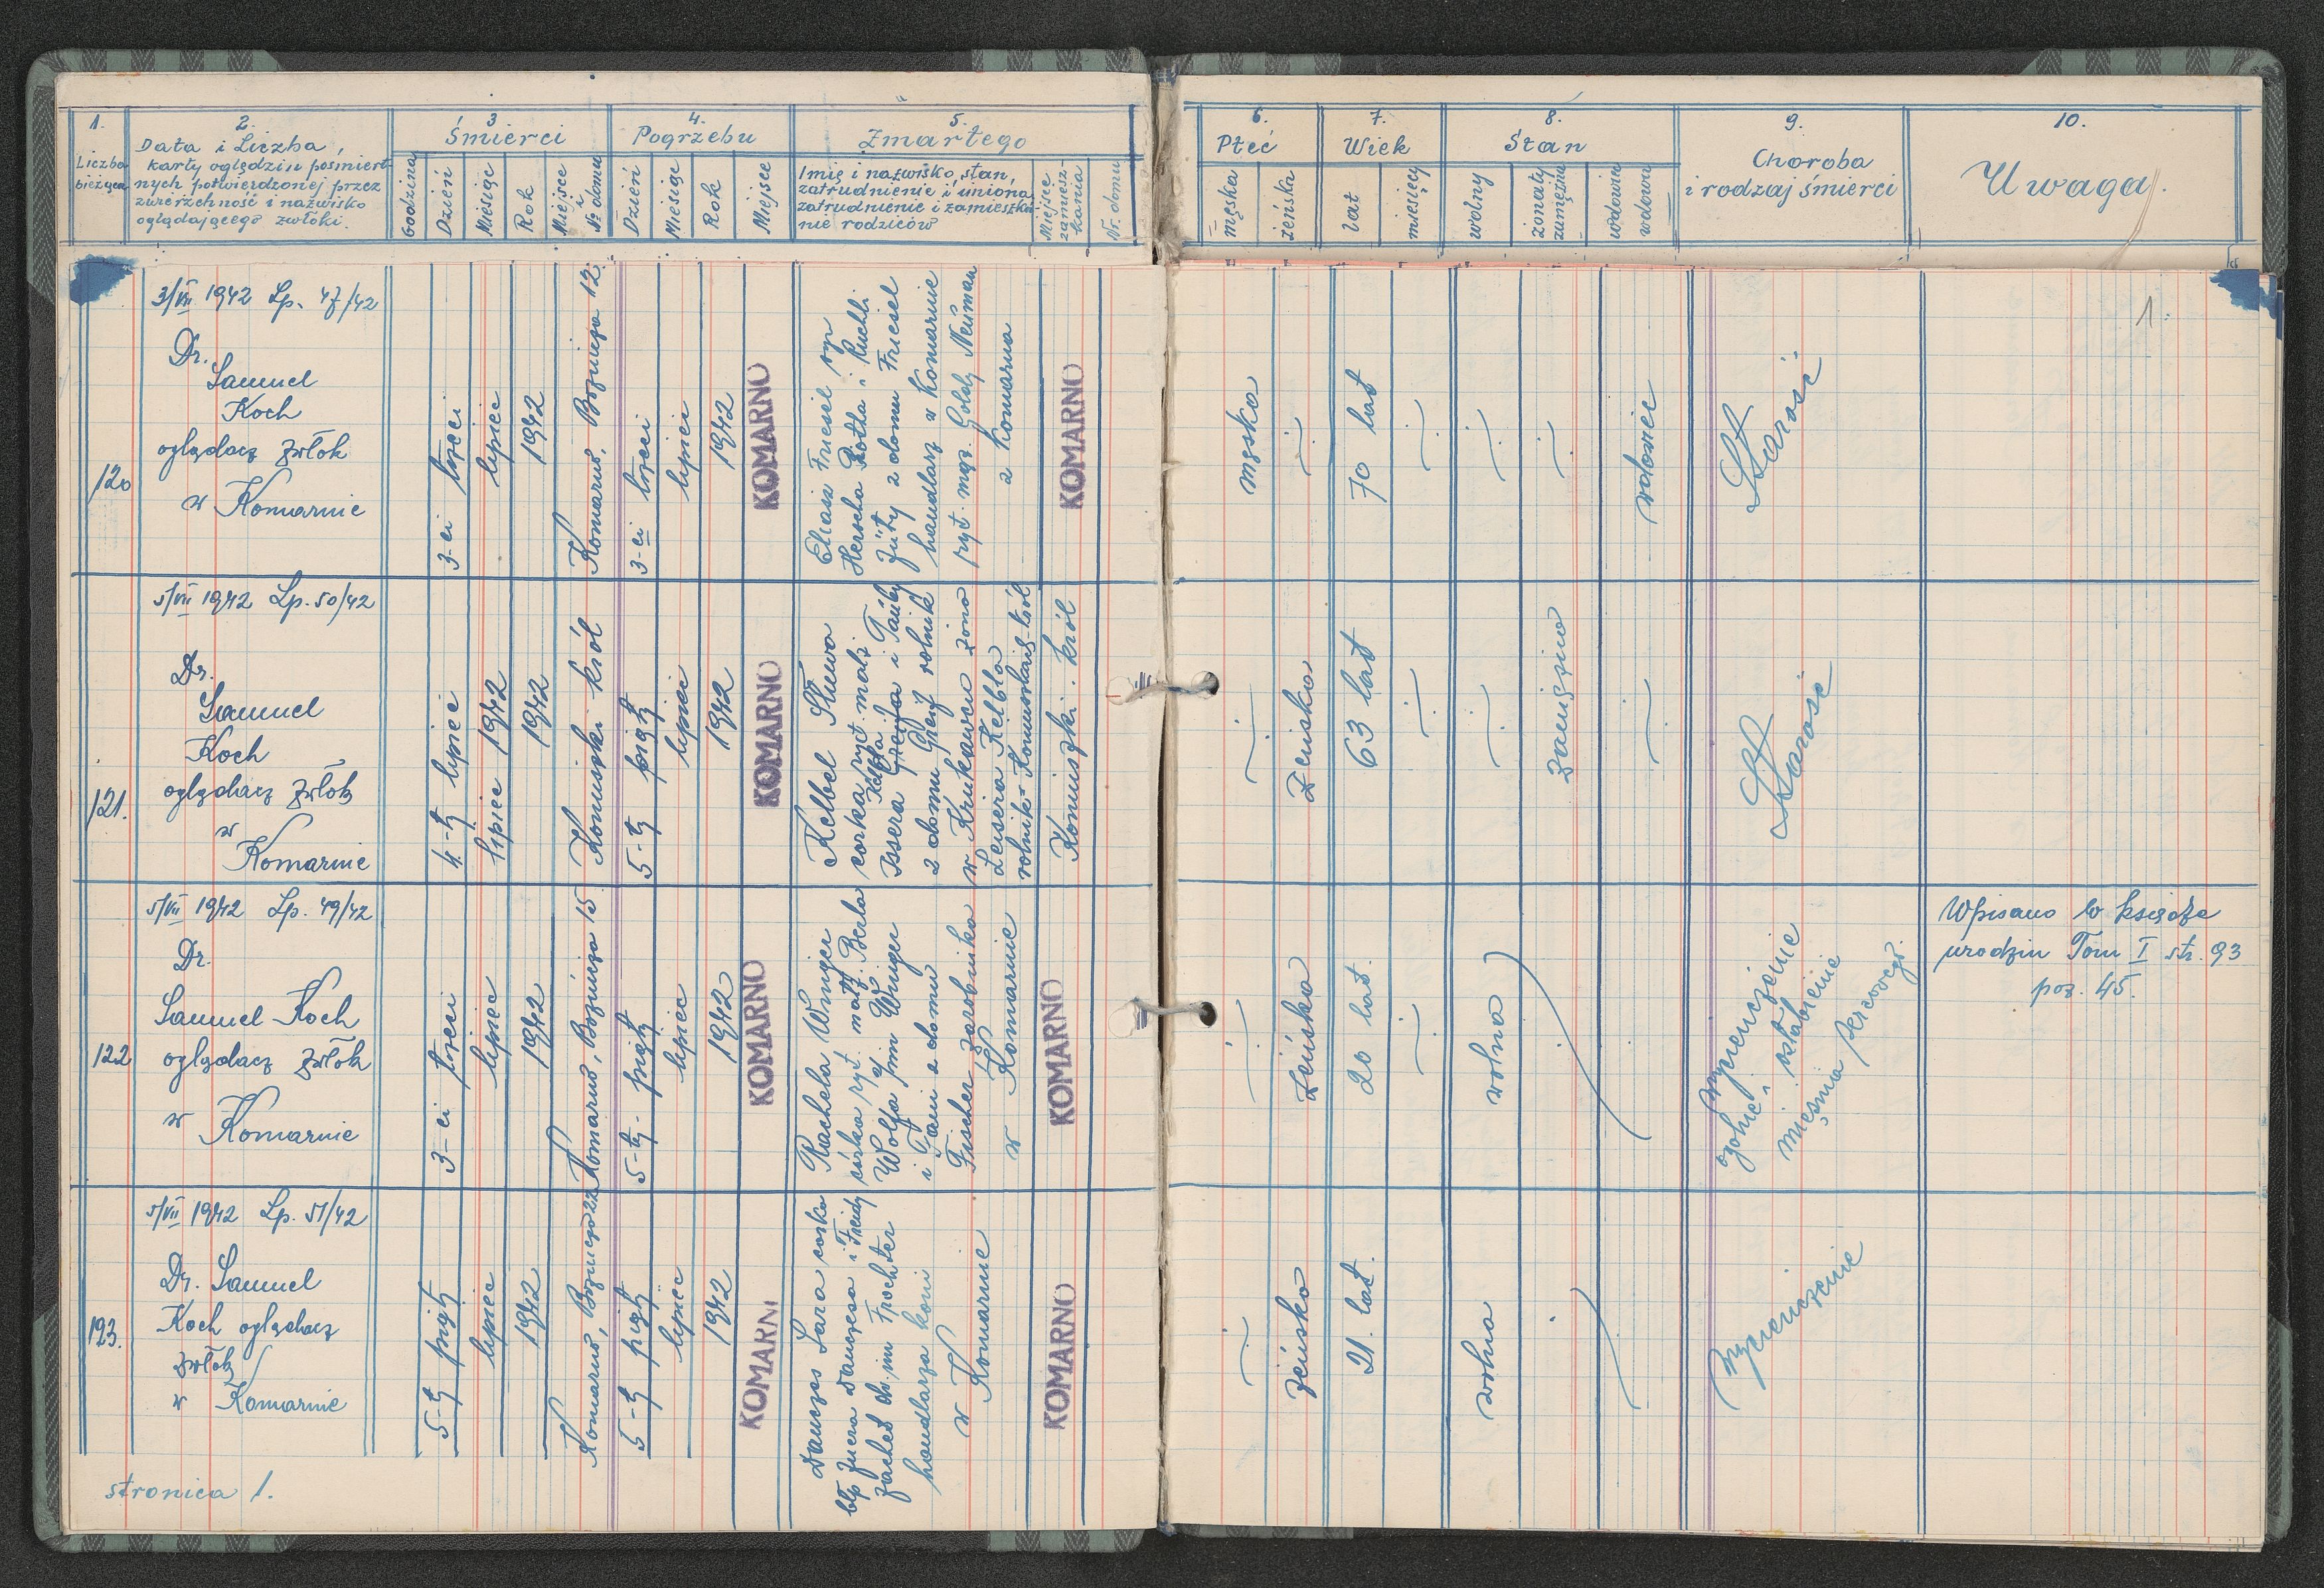 1.
Liczba
bieżąca
2.
Data i Liczba,
karty oględzin pośmiert-
nych potwierdzonej przez
zwierzchność i nazwisko
oglądającego zwłoki.
3
Śmierci
Godzina
Dzień
Miesiąc
Rok
Miejsce
i
Nr domu
4.
Pogrzebu
Dzień
Miesiąc
Rok
Miejsce
5.
Zmarłego
Imię i nazwisko, stan,
zatrudnienie i imiona,
zatrudnienie i zamieszka-
nie rodziców
Miejsce
zamiesz-
kania
Nr. domu
6.
Płeć
męska
żeńska
7.
Wiek
lat
miesięcy
8.
Stan
wolny
żonaty
zamężna
wdowiec
wdowa
9.
Choroba
i rodzaj śmierci
10.
Uwaga.
1.
120
3/VII 1942 Lp. 47/42
Dr.
Samuel
Koch
oglądacz zwłok
w Komarnie
3-ci trzeci
lipiec
1942
Komarno, Bożnicza 12.
3-ci trzeci
lipiec
1942
KOMARNO
Eliasz Friesel syn
Herscha Rotha i Ruchli
Jüty z domu Friesel
handlarz w Komarnie
ryt. mąż. Goldy Neuman
z Komarna
KOMARNO
męska
70 lat
wdowiec
Starość
121.
5/VII 1942 Lp. 50/42
Dr.
Samuel
Koch
oglądacz zwłok
w
Komarnie
4-ty lipiec
lipiec 1942
1942
Komuszki-król
5-ty piąty
lipiec
1942
KOMARNO
Kelbel
córka ryt. małż.
Issera i Tauby
z domu rolnik
w żona
Leisera Kelbla
rolnik
Komuszki. król
żeńska
63 lat
zamężna
Starość
122
5/VII 1942 Lp. 49/42
Dr.
Samuel Koch
oglądacz zwłok
w Komarnie
3-ci trzeci
lipiec
1942
Komarno, Bożnicza 15
5-ty- piąty
lipiec
1942
KOMARNO
Rachela Winiger
córka ryt. małż. Berla
Wolfa Winiger
i z domu
Fischer zarobnika
w Komarnie
KOMARNO
żeńska
20 lat.
wolna
Wycieńczenie
ogólne i osłabienie
mięśnia sercowego.
Wpisano w księdze
urodzin Tom I str. 93
poz. 45.
123.
5/VII 1942 Lp. 51/42
Dr. Samuel
Koch oglądacz
zwłok
w Komarnie
5-ty piąty
lipiec
1942
Komarno, Bożnicza 22
5-ty piąty
lipiec
1942
KOMARN
Danczes Sara córka
Danczesa i Freidy
Trochter
handlarza koni
w Komarnie
KOMARNO
żeńska
21. lat.
wolna
Wycieńczenie
stronica 1.